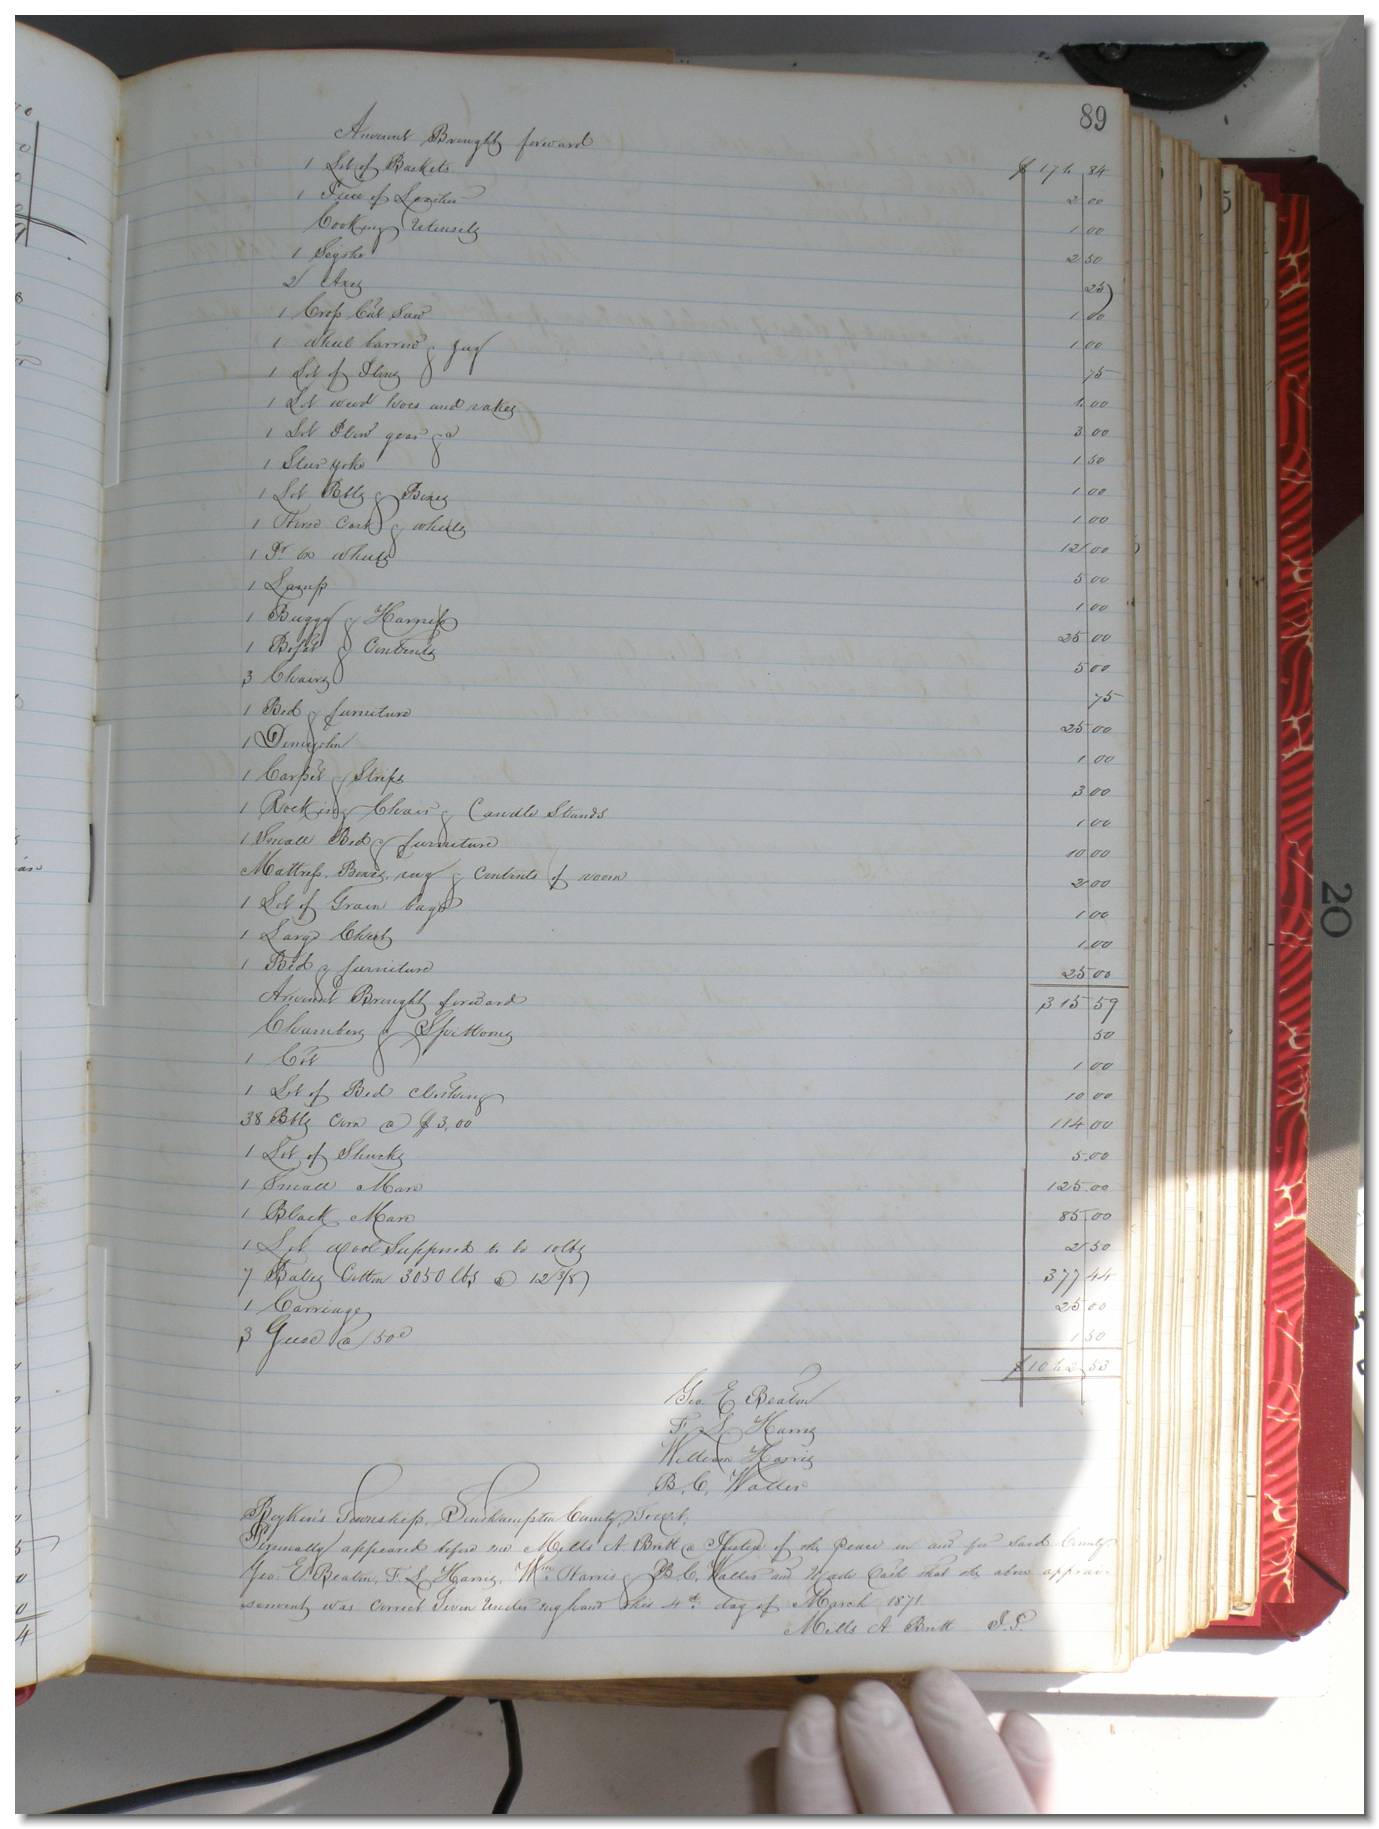 89
Amount Brought forward $ 176 84
1 Lot of Baskets 2 00
1 Piece of Leather 1 00
Cooking Utensils 2 50
1 Scythe 25
2 Axes 1 00
1 Crop Cut Saw 1 00
1 wheel barrow & jug 75
1 Lot of Plows 1.00
1 Lot weed hoes and rakes 3 00
1 Lot Plow gear &c 1 50
1 Steer yoke 1 00
1 Lot Bbls & Boxes 1 00
1 Horse Cart & wheels 12 00
1 Pr Ox wheels 5 00
1 Lamp 1 00
1 Buggy & Harness 25 00
1 Bofat & Contents 5 00
3 Chairs 75
1 Bed & furniture 25 00
1 Demijohn 1 00
1 Carpet & Strips 3 00
1 Rocking Chair & Candle Stands 1 00
1 Small Bed & furniture 10 00
Mattress, Boxes, rug & Contents of room 2 00
1 Lot of Grain bags 1 00
1 Large Chest 1 00
1 Bed & furniture 25 00
Amount Brought forward 315 59
Chambers & Spittoons 50
1 Cot 1 00
1 Lot of Bed clothing 10 00
38 Bbls Corn @ $3,00 114 00
1 Lot of Shucks 5.00
1 Small Mare 125.00
1 Black Mare 85 00
1 Lot wool Supposed to be 10lbs 2 50
7 Bales Cotton 3050 lbs @ 12 3/8 377 44
1 Carriage 25 00
3 Geese @ 50c 1 50
$ 1062 53
Geo. E Beaton
F. L. Harris
William Harris
B. C. Waller
Boykin's Township, Southampton County, Towit,
Personally appeared before me Mills A Britt a Justice of the Peace in and for Said County
Geo. E. Beaton, F. L Harris, Wm Harris & B. C. Waller and Made Oath that the above apprai-
sement was correct Given Under my hand this 4th day of March 1871
Mills A Britt J. P.
20